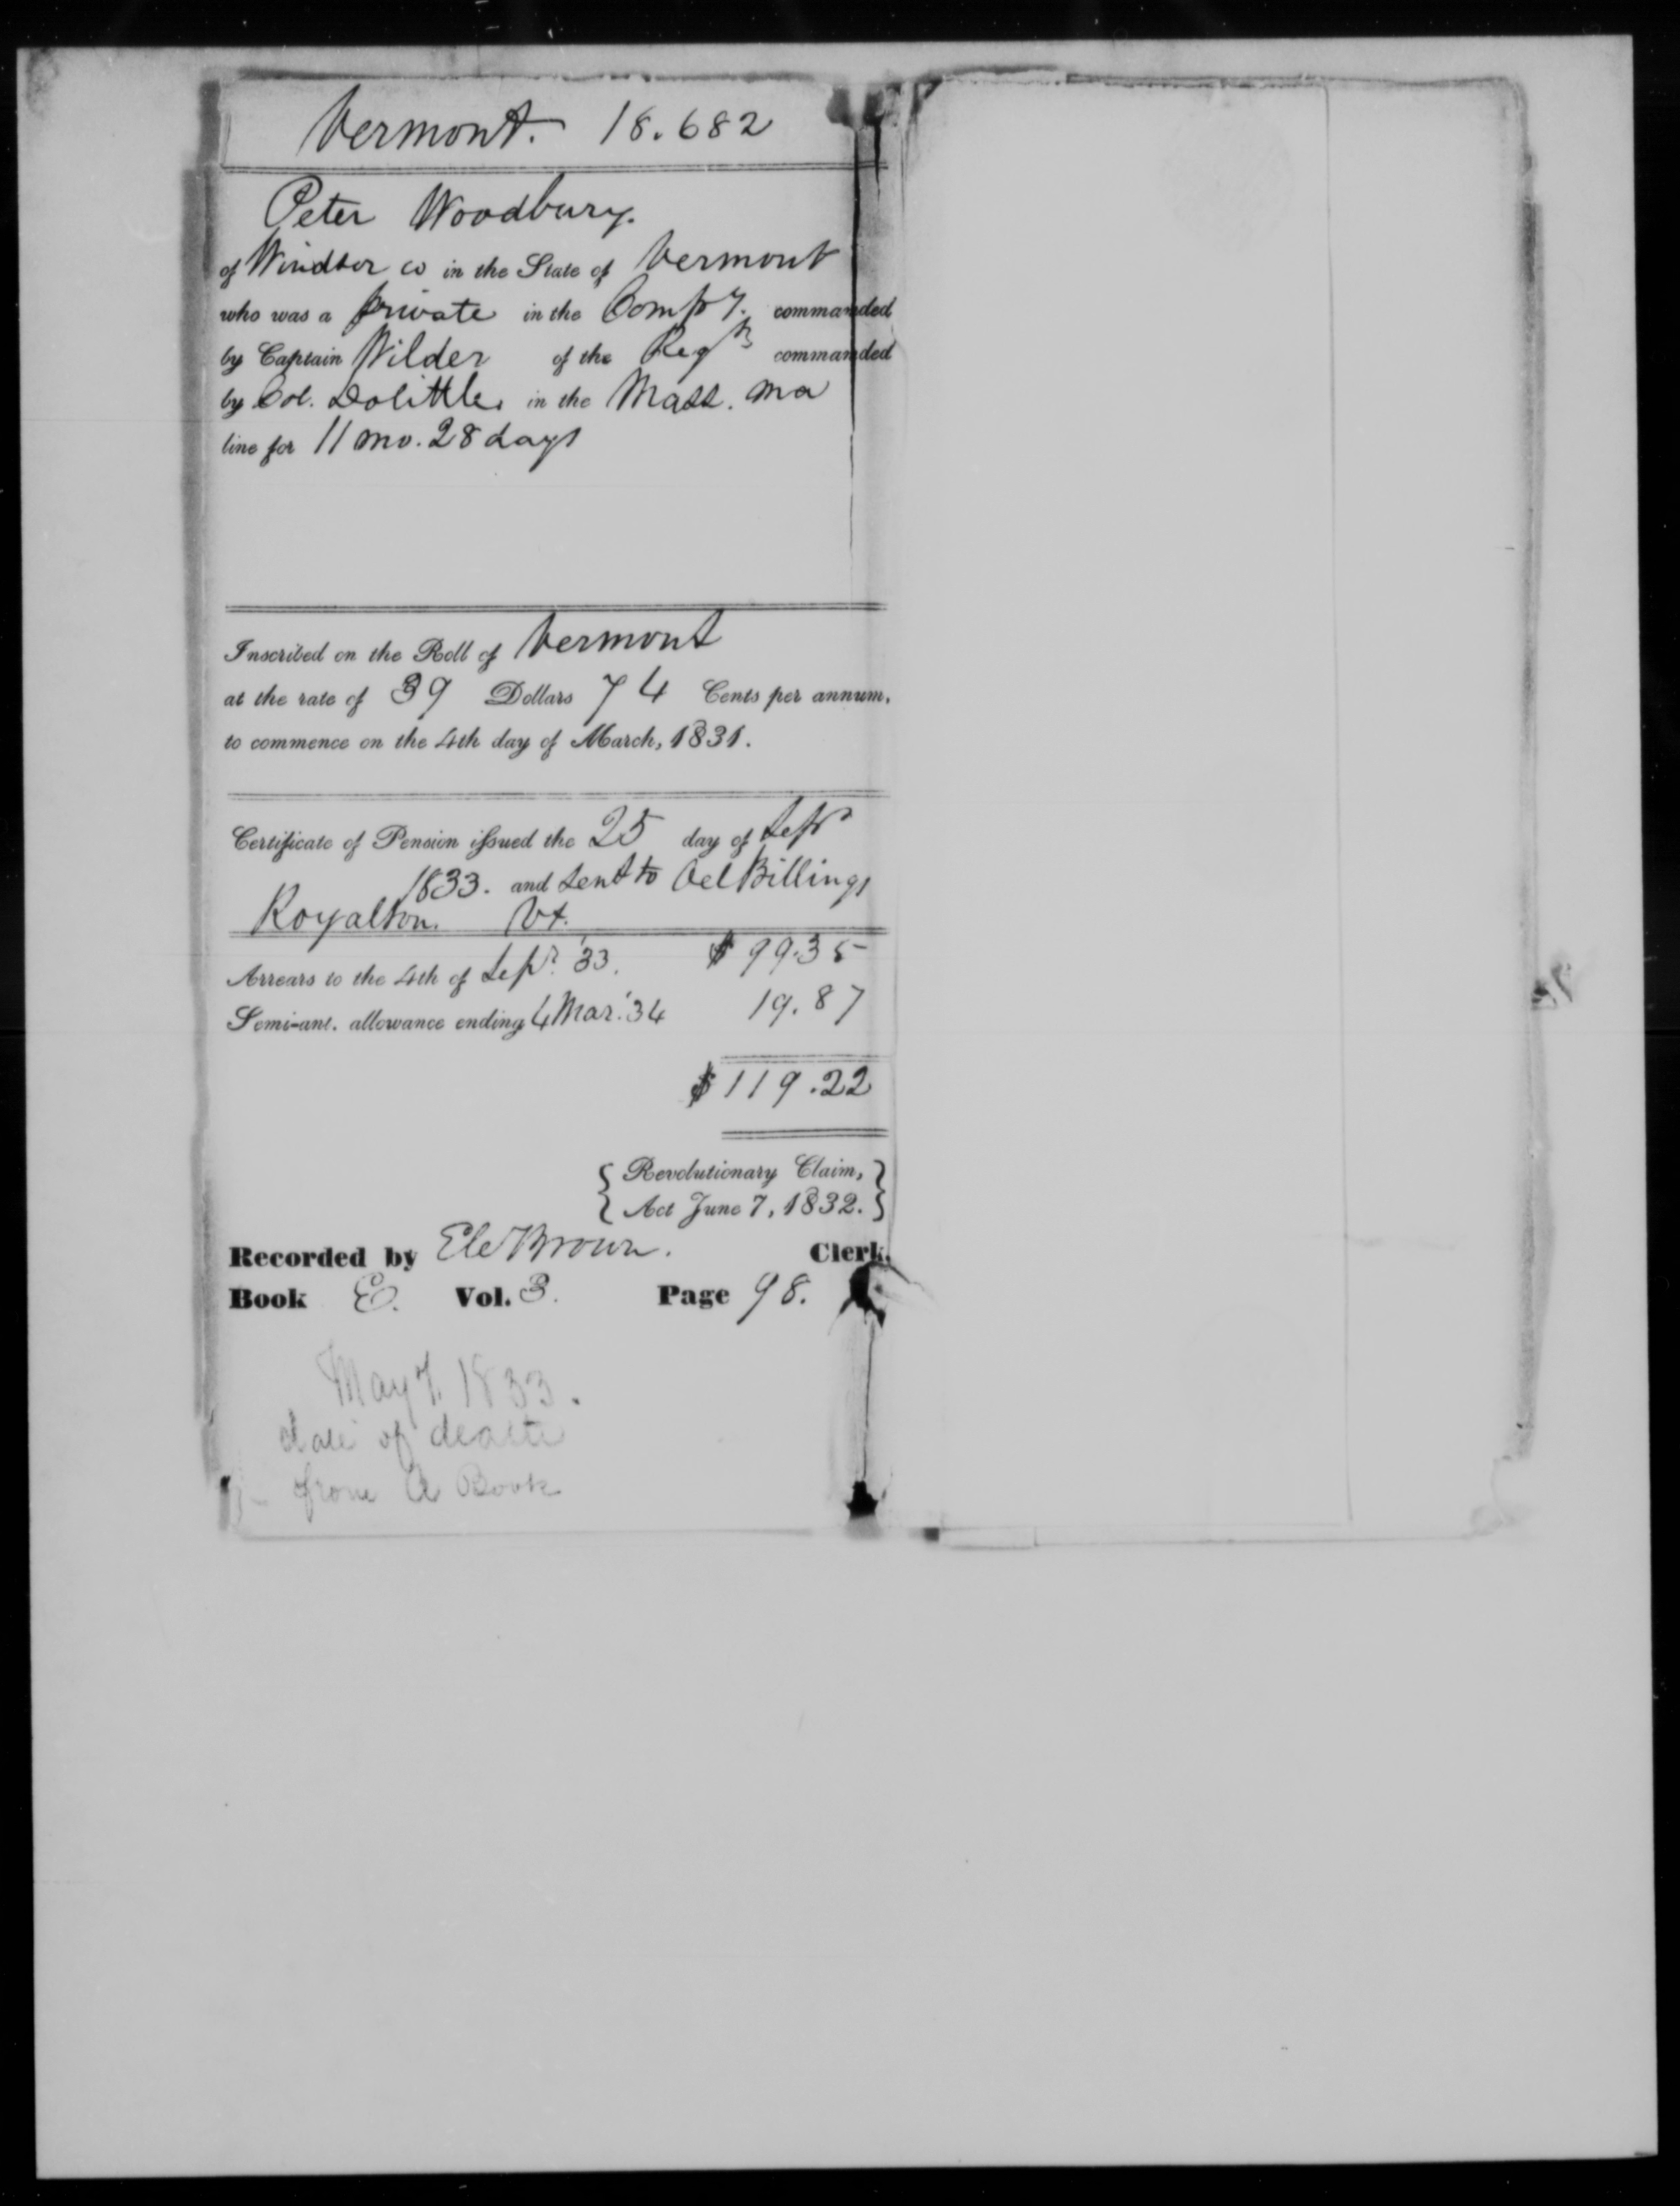 Vermont. 18.682
Peter Woodbury.
of Windsor co in the State of Vermont
who was a private in the Compy. commanded
by Captain Wilder of the Regt commanded
by Col. Dolittle, in the Mass. ma
line for 11 mo. 28 days
Inscribed on the Roll of Vermont
at the rate of 39 Dollars 74 Cents per annum,
to commence on the 4th day of March, 1831.
Certificate of Pension issued the 25 day of Sepr
1833. and sent to Oel Billings
Royalton. Vt.
Arrears to the 4th of Sepr. '33. $99.35
Semi-anl. allowance ending 4 Mar. '34 19.87
$119.22
{ Revolutionary Claim, }
{ Act June 7, 1832. }
Recorded by Brown. Clerk.
Book E. Vol. 3. Page 98.
May 7. 1833.
date of death
from A Book